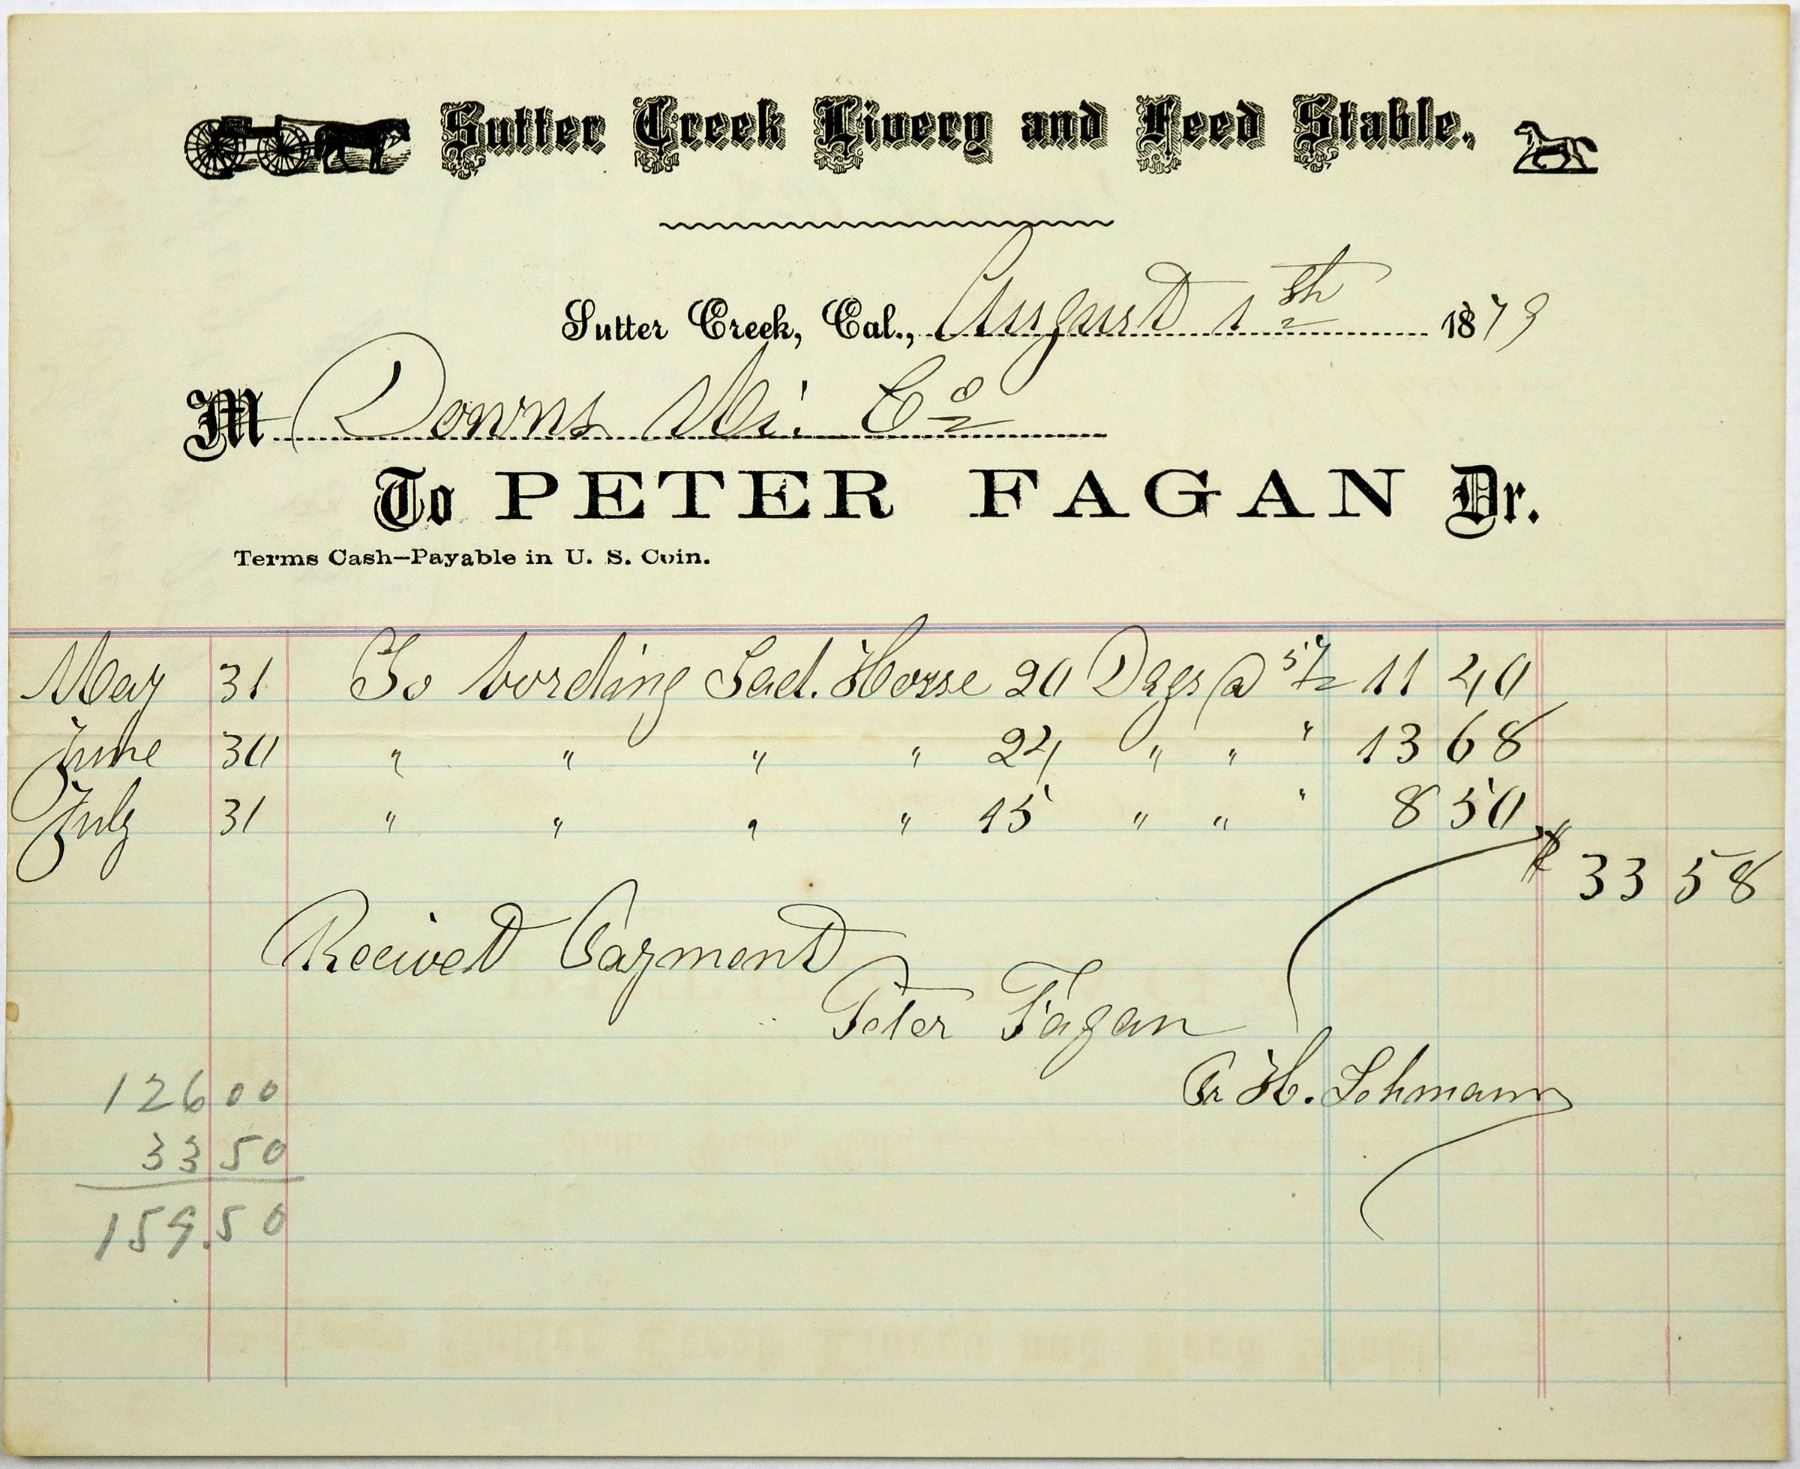 Sutter Creek Livery and Feed Stable,
Sutter Creek, Cal., August 1th 1879
M Downs Mi. Co
To PETER FAGAN Dr.
Terms Cash—Payable in U. S. Coin.
May 31 To bording Sad. Horse 20 Days @ 57/- 11 40
June 30 " " " " 24 " " " 13 68
July 31 " " " " 15 " " " 8 50
$ 33 58
Receivet Payment
Peter Fagan
Pr H. Lehmann
126 00
33 50
159.50